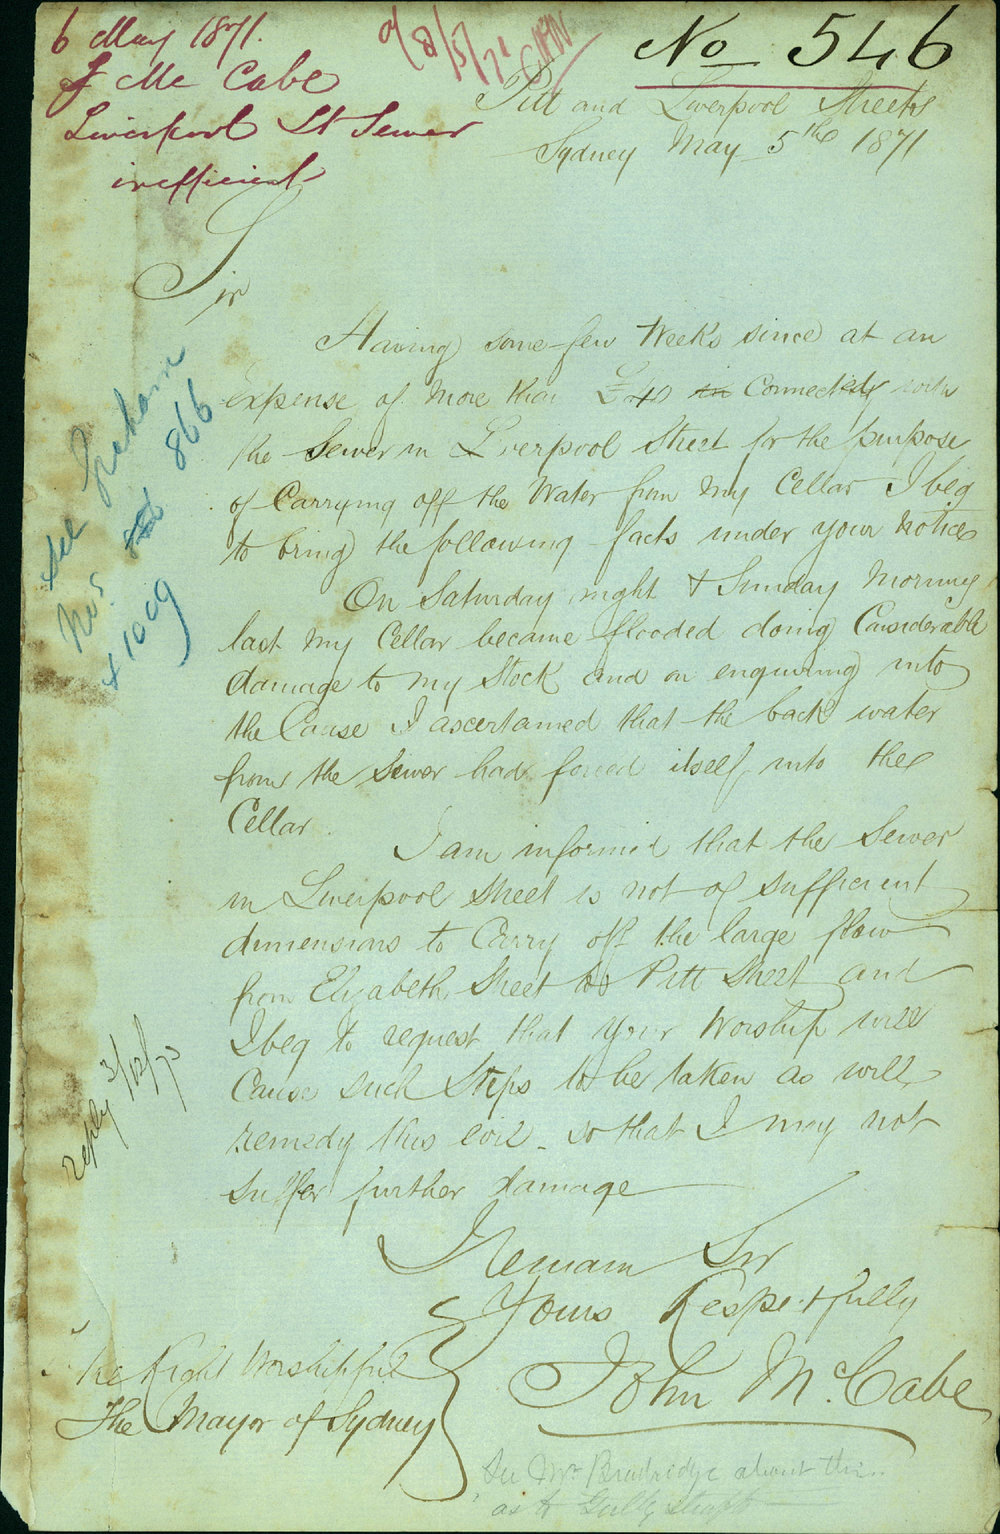 6 May 1871.
J Mc Cabe
Liverpool St Sewer
inefficient
8/5/71
No 546
Pitt and Liverpool Streets
Sydney May 5th 1871
Sir
Having some few Weeks since at an
expense of More than £40 in Connected with
the Sewer in Liverpool Street for the purpose
of Carrying off the Water from my Cellar I beg
to bring the following facts under your Notice
On Saturday night & Sunday Morning
last my Cellar became flooded doing Considerable
damage to my Stock and on enquiring into
the Cause I ascertained that the back water
from the Sewer had forced itself into the
Cellar.
I am informed that the Sewer
in Liverpool Street is not of sufficient
dimensions to Carry off the large flow
from Elizabeth Street to Pitt Street and
I beg to request that your Worship will
Cause such Steps to be taken as will
remedy this evil - so that I may not
suffer further damage
I Remain Sir
Yours Respectfully
John McCabe
The Right Worshipful
The Mayor of Sydney
See
Nos. 866
& 1009
reply 3/12/72
See Mr Bradridge about this
as to Gully